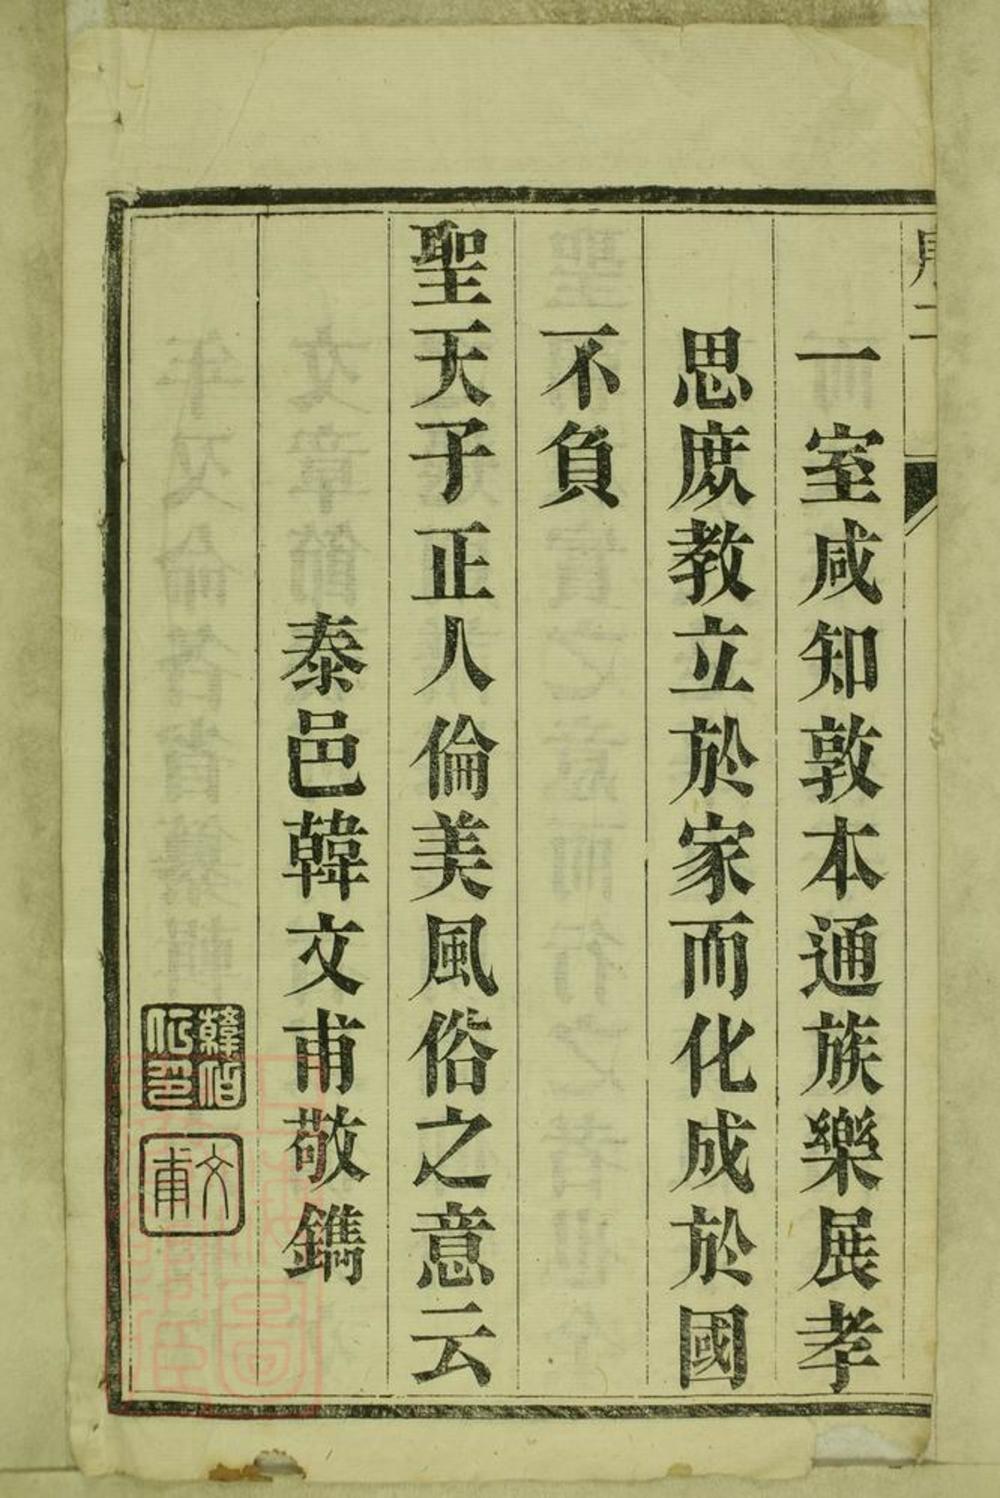 一室咸知敦本通族樂展孝
思庶教立於家而化成於國
不負
聖天子正人倫美風俗之意云
泰邑韓文甫敬鐫
文甫